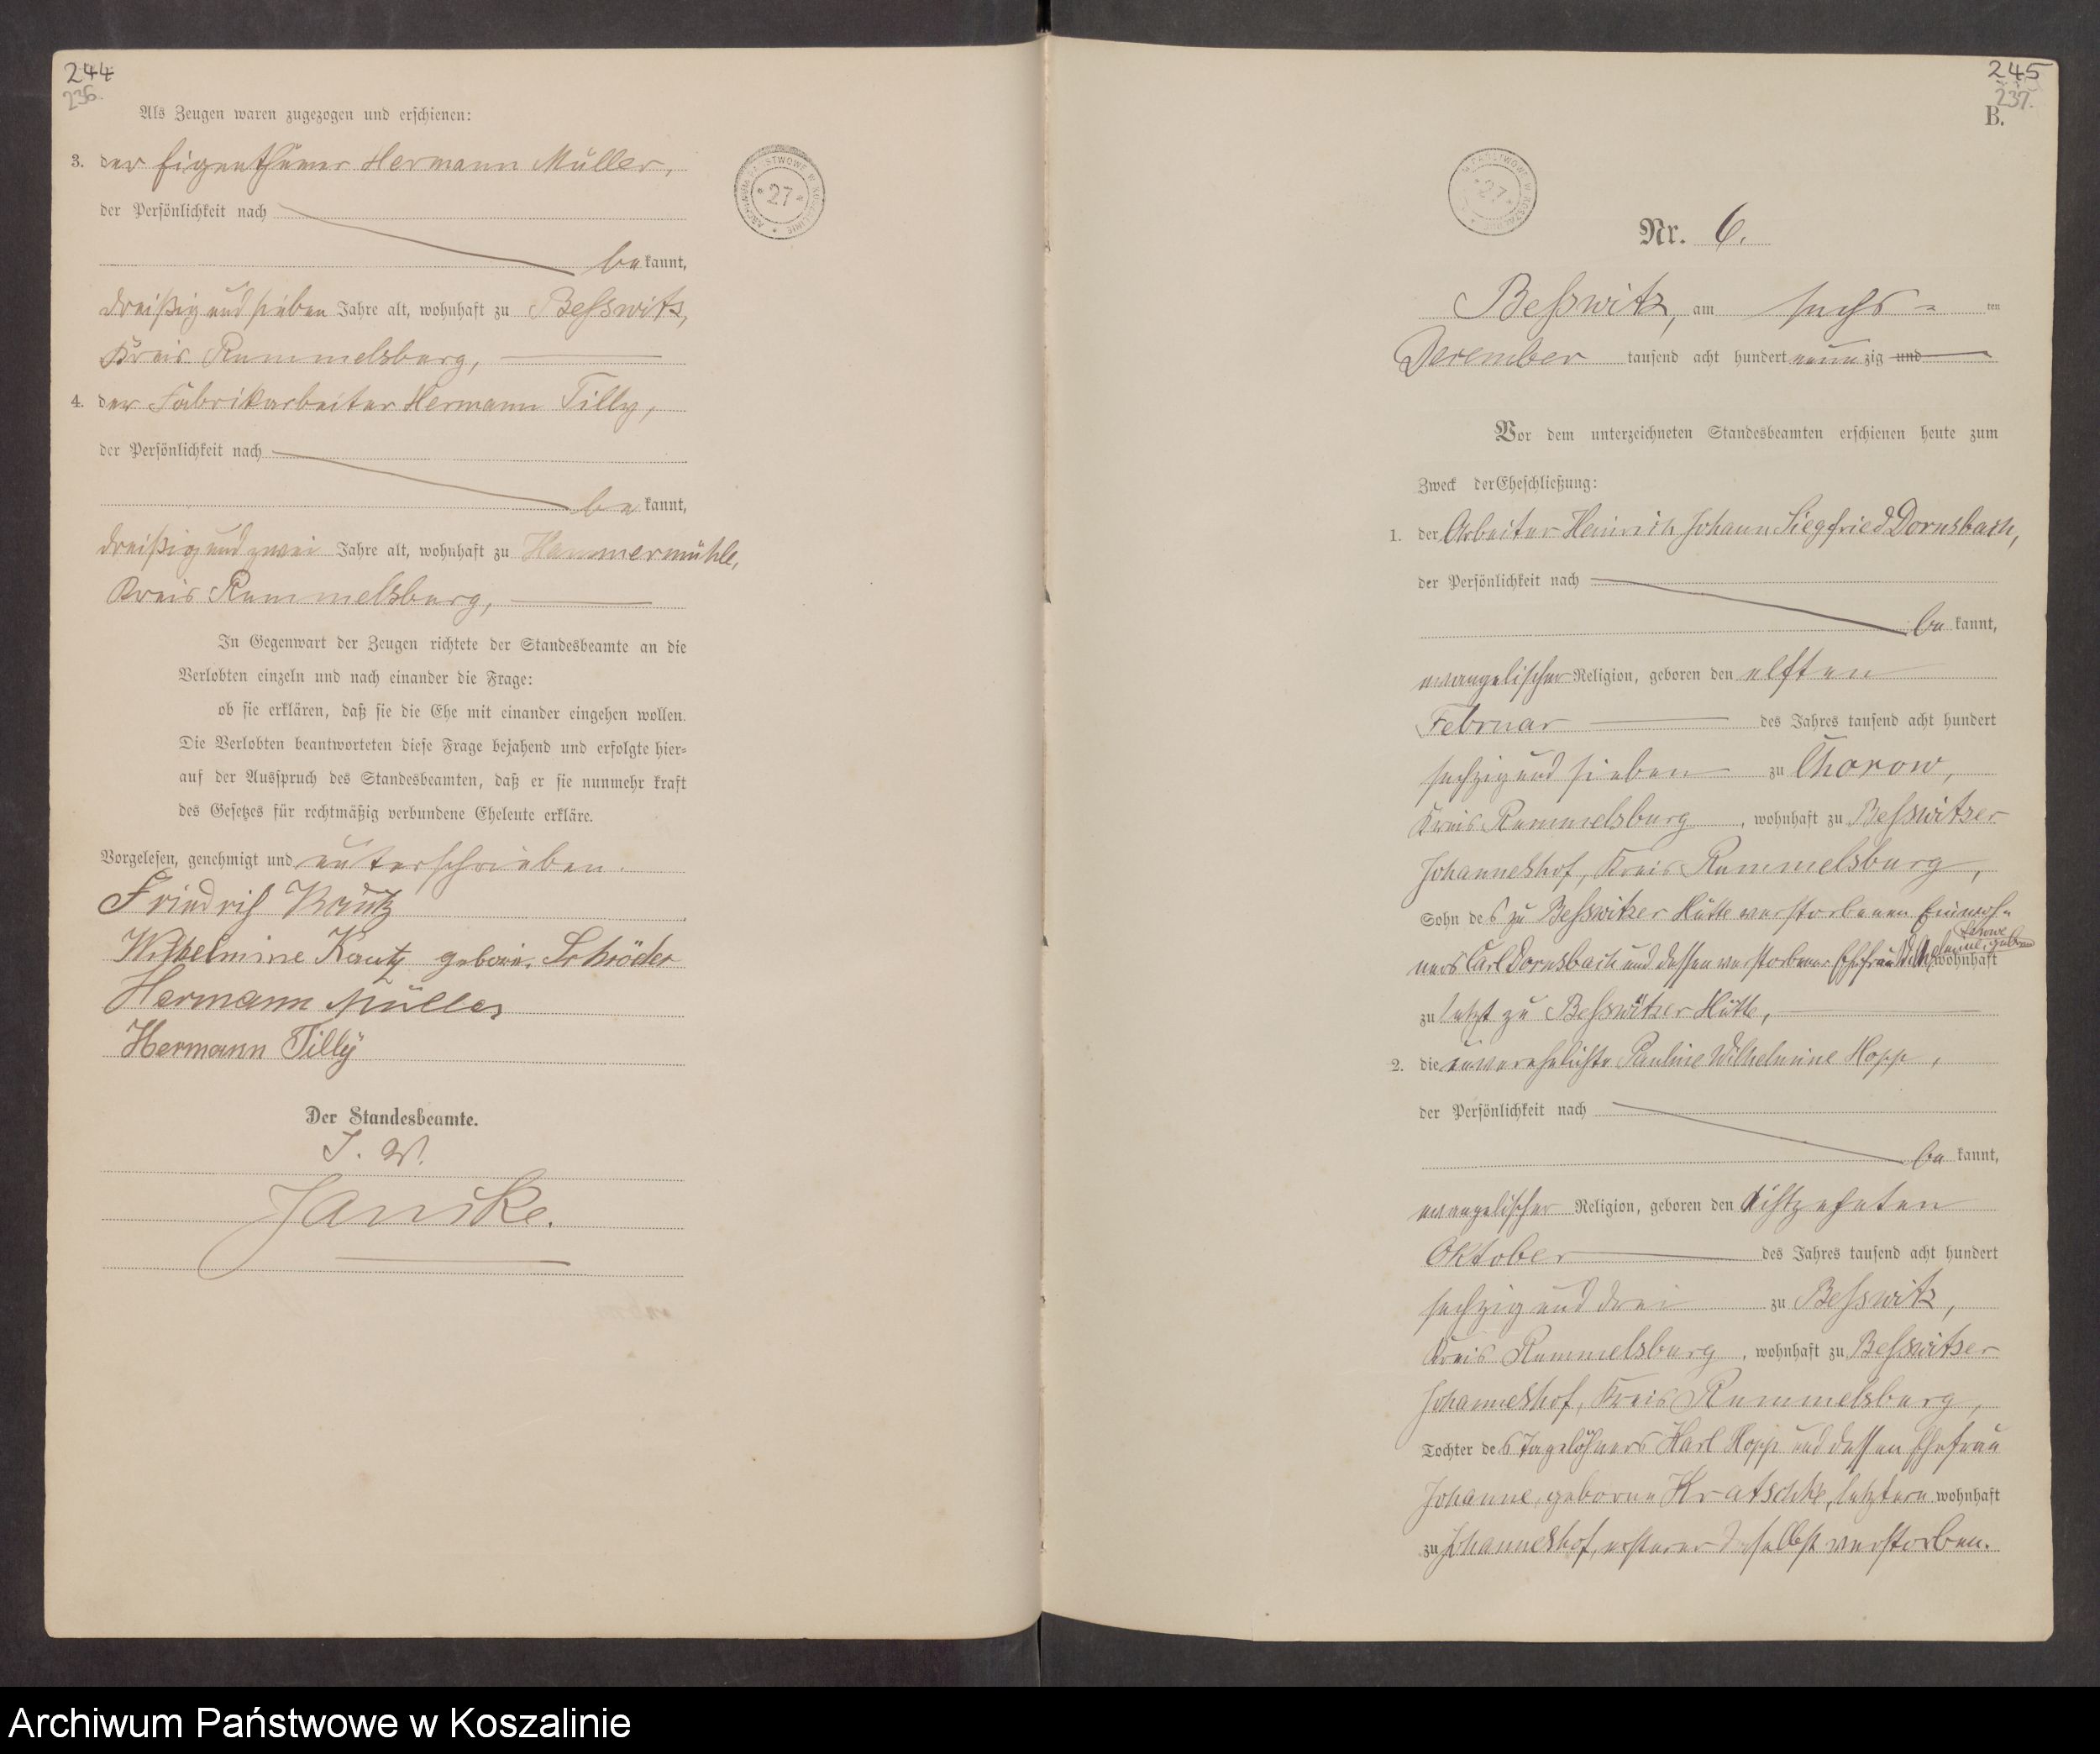 244
236.
Als Zeugen waren zugezogen und erschienen:
3. der Eigenthümer Hermann Müller,
der Persönlichkeit nach
bekannt,
dreißig und sieben Jahre alt, wohnhaft zu Beßwitz,
Kreis Rummelsburg,
4. der Fabrikarbeiter Hermann Tilly,
der Persönlichkeit nach
bekannt,
dreißig und zwei Jahre alt, wohnhaft zu Hammermühle,
Kreis Rummelsburg,
In Gegenwart der Zeugen richtete der Standesbeamte an die
Verlobten einzeln und nach einander die Frage:
ob sie erklären, daß sie die Ehe mit einander eingehen wollen.
Die Verlobten beantworteten diese Frage bejahend und erfolgte hier-
auf der Ausspruch des Standesbeamten, daß er sie nunmehr kraft
des Gesetzes für rechtmäßig verbundene Eheleute erkläre.
Vorgelesen, genehmigt und unterschrieben.
Friedrich Kautz
Wilhelmine Kautz gebore. Schröder
Hermann Müller
Hermann Tilly
Der Standesbeamte.
J. V.
Janike.
ARCHIWUM PAŃSTWOWE W KOSZALINIE
* 27 *
245
237.
B.
ARCHIWUM PAŃSTWOWE W KOSZALINIE
* 27 *
Nr. 6.
Beßwitz, am sechs = ten
Dezember tausend acht hundert neunzig und
Vor dem unterzeichneten Standesbeamten erschienen heute zum
Zweck der Eheschließung:
1. der Arbeiter Heinrich Johann Siegfried Dornsbach,
der Persönlichkeit nach
bekannt,
evangelischer Religion, geboren den elften
Februar des Jahres tausend acht hundert
sechzig und sieben zu Chorow,
Kreis Rummelsburg, wohnhaft zu Beßwitzer
Johanneshof, Kreis Rummelsburg,
Sohn des zu Beßwitzer Hütte verstorbenen Einwoh-
ners Carl Dornsbach und dessen verstorbener Ehefrau geborene wohnhaft
zu letzt zu Beßwitzer Hütte,
2. die unverehelichte Pauline Wilhelmine Hopp,
der Persönlichkeit nach
bekannt,
evangelischer Religion, geboren den achtzehnten
Oktober des Jahres tausend acht hundert
sechzig und drei zu Beßwitz,
Kreis Rummelsburg, wohnhaft zu Beßwitzer
Johanneshof, Kreis Rummelsburg,
Tochter des Tagelöhners Karl Hopp und dessen Ehefrau
Johanne, geborene Kratschke, letztere wohnhaft
zu Johanneshof, ersterer daselbst verstorben.
Archiwum Państwowe w Koszalinie